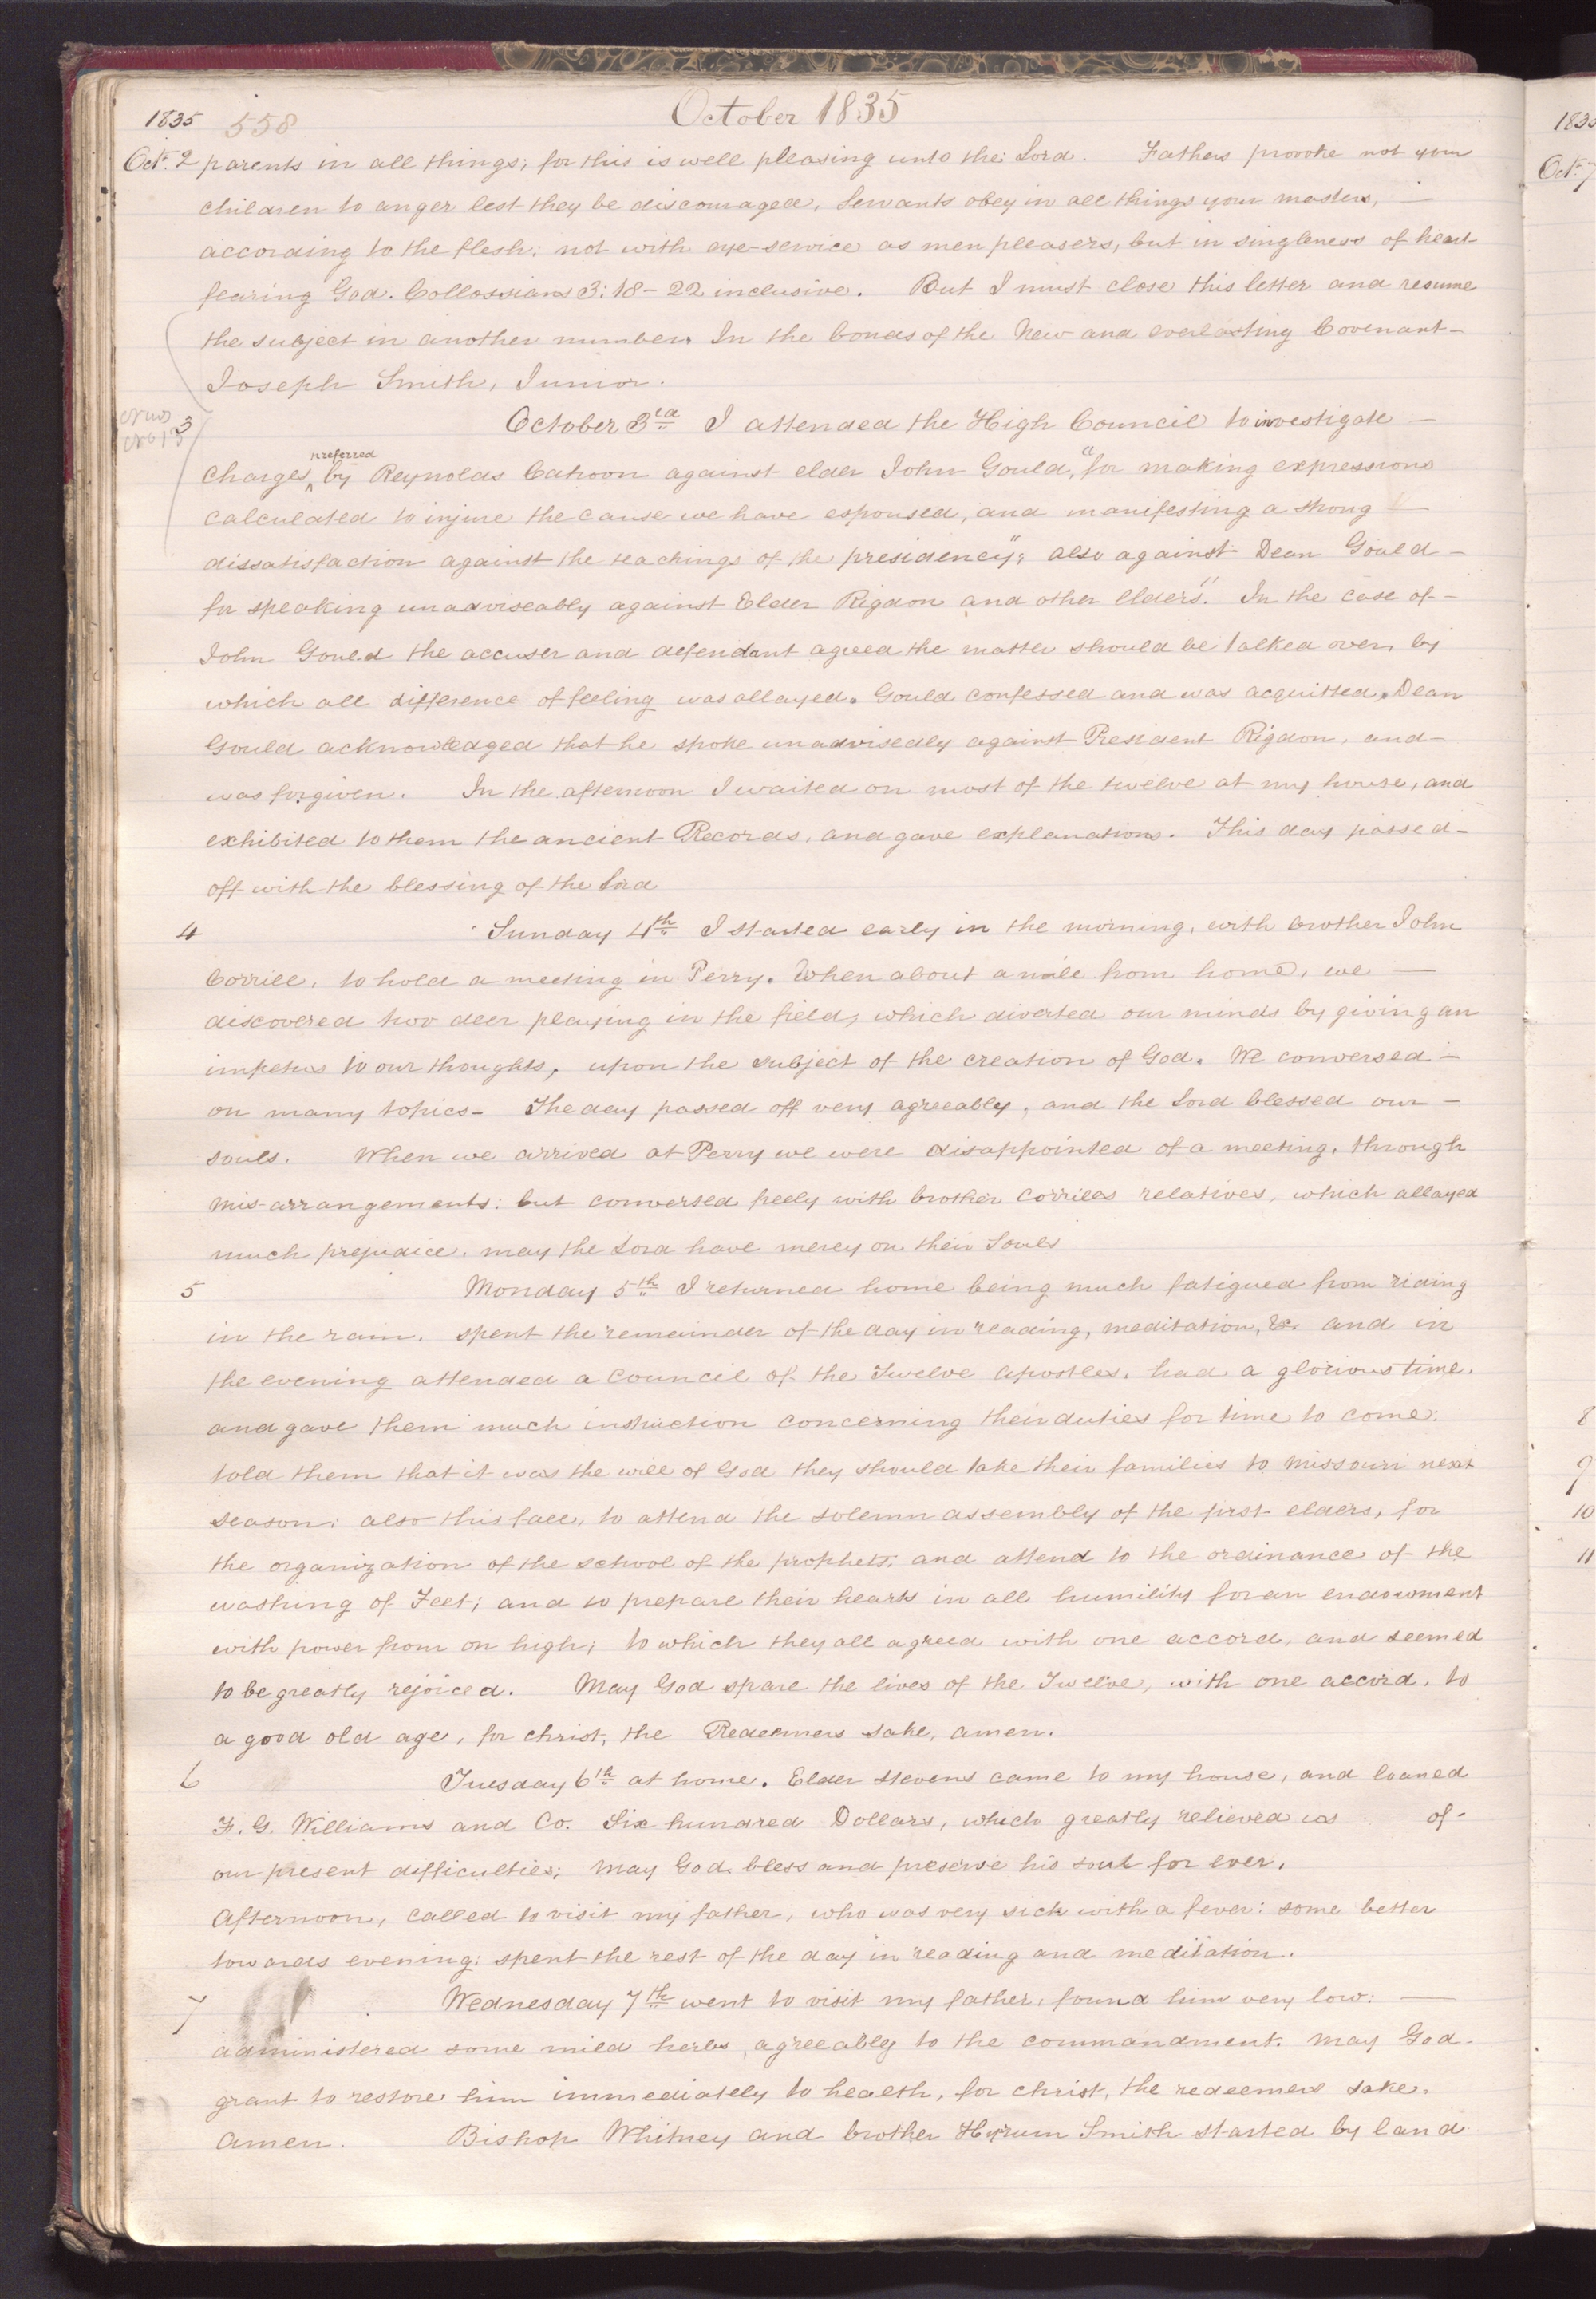 October 1835
1835 558
Oct. 2 parents in all things; for this is well pleasing unto the Lord. Fathers provoke not your
children to anger lest they be discouraged, Servants obey in all things your masters, —
according to the flesh; not with eye-service as men pleasers, but in singleness of heart
fearing God. Collossians 3: 18-22 inclusive. But I must close this letter and resume
the subject in another number. In the bonds of the New and everlasting Covenant—
Joseph Smith, Junior.
3 October 3rd I attended the High Council to investigate —
preferred
charges, ^ by Reynolds Cahoon against elder John Gould, "for making expressions
calculated to injure the cause we have espoused, and manifesting a strong —
dissatisfaction against the teachings of the presidency"; also against Dean Gould —
for speaking unadviseably against Elder Rigdon and other elders." In the case of —
John Gould the accuser and defendant agreed the matter should be talked over, by
which all difference of feeling was allayed. Gould confessed and was acquitted. Dean
Gould acknowledged that he spoke unadvisedly against President Rigdon, and —
was forgiven. In the afternoon I waited on most of the twelve at my house, and
exhibited to them the ancient Records, and gave explanations. This day passed —
off with the blessing of the Lord
4 Sunday 4th I started early in the morning, with brother John
Corrill, to hold a meeting in Perry. When about a mile from home, we —
discovered two deer playing in the field, which diverted our minds by giving an
impetus to our thoughts, upon the subject of the creation of God. We conversed —
on many topics— The day passed off very agreeably, and the Lord blessed our —
souls. When we arrived at Perry we were disappointed of a meeting, through
mis-arrangements: but conversed freely with brother Corrills relatives, which allayed
much prejudice. may the Lord have mercy on their Souls
5 Monday 5th I returned home being much fatigued from riding
in the rain. spent the remainder of the day in reading, meditation, &c. and in
the evening attended a council of the Twelve apostles. had a glorious time.
and gave them much instruction concerning their duties for time to come:
told them that it was the will of God they should take their families to Missouri next
season; also this fall, to attend the solemn assembly of the first elders, for
the organization of the school of the prophets; and attend to the ordinance of the
washing of Feet; and to prepare their hearts in all humility for an endowment
with power from on high; to which they all agreed with one accord, and seemed
to be greatly rejoiced. May God spare the lives of the Twelve, with one accord, to
a good old age, for christ, the Redeemers sake, amen.
6 Tuesday 6th at home. Elder Stevens came to my house, and loaned
F. G. Williams and Co. Six hundred Dollars, which greatly relieved us of —
our present difficulties; May God bless and preserve his soul for ever.
Afternoon, called to visit my father, who was very sick with a fever: some better
towards evening: spent the rest of the day in reading and meditation.
7 Wednesday 7th went to visit my father, found him very low: —
administered some mild herbs, agreeably to the commandment. May God
grant to restore him immediately to health, for christ, the redeemers sake.
amen. Bishop Whitney and brother Hyrum Smith started by land
Oct. 7
8
9
10
11